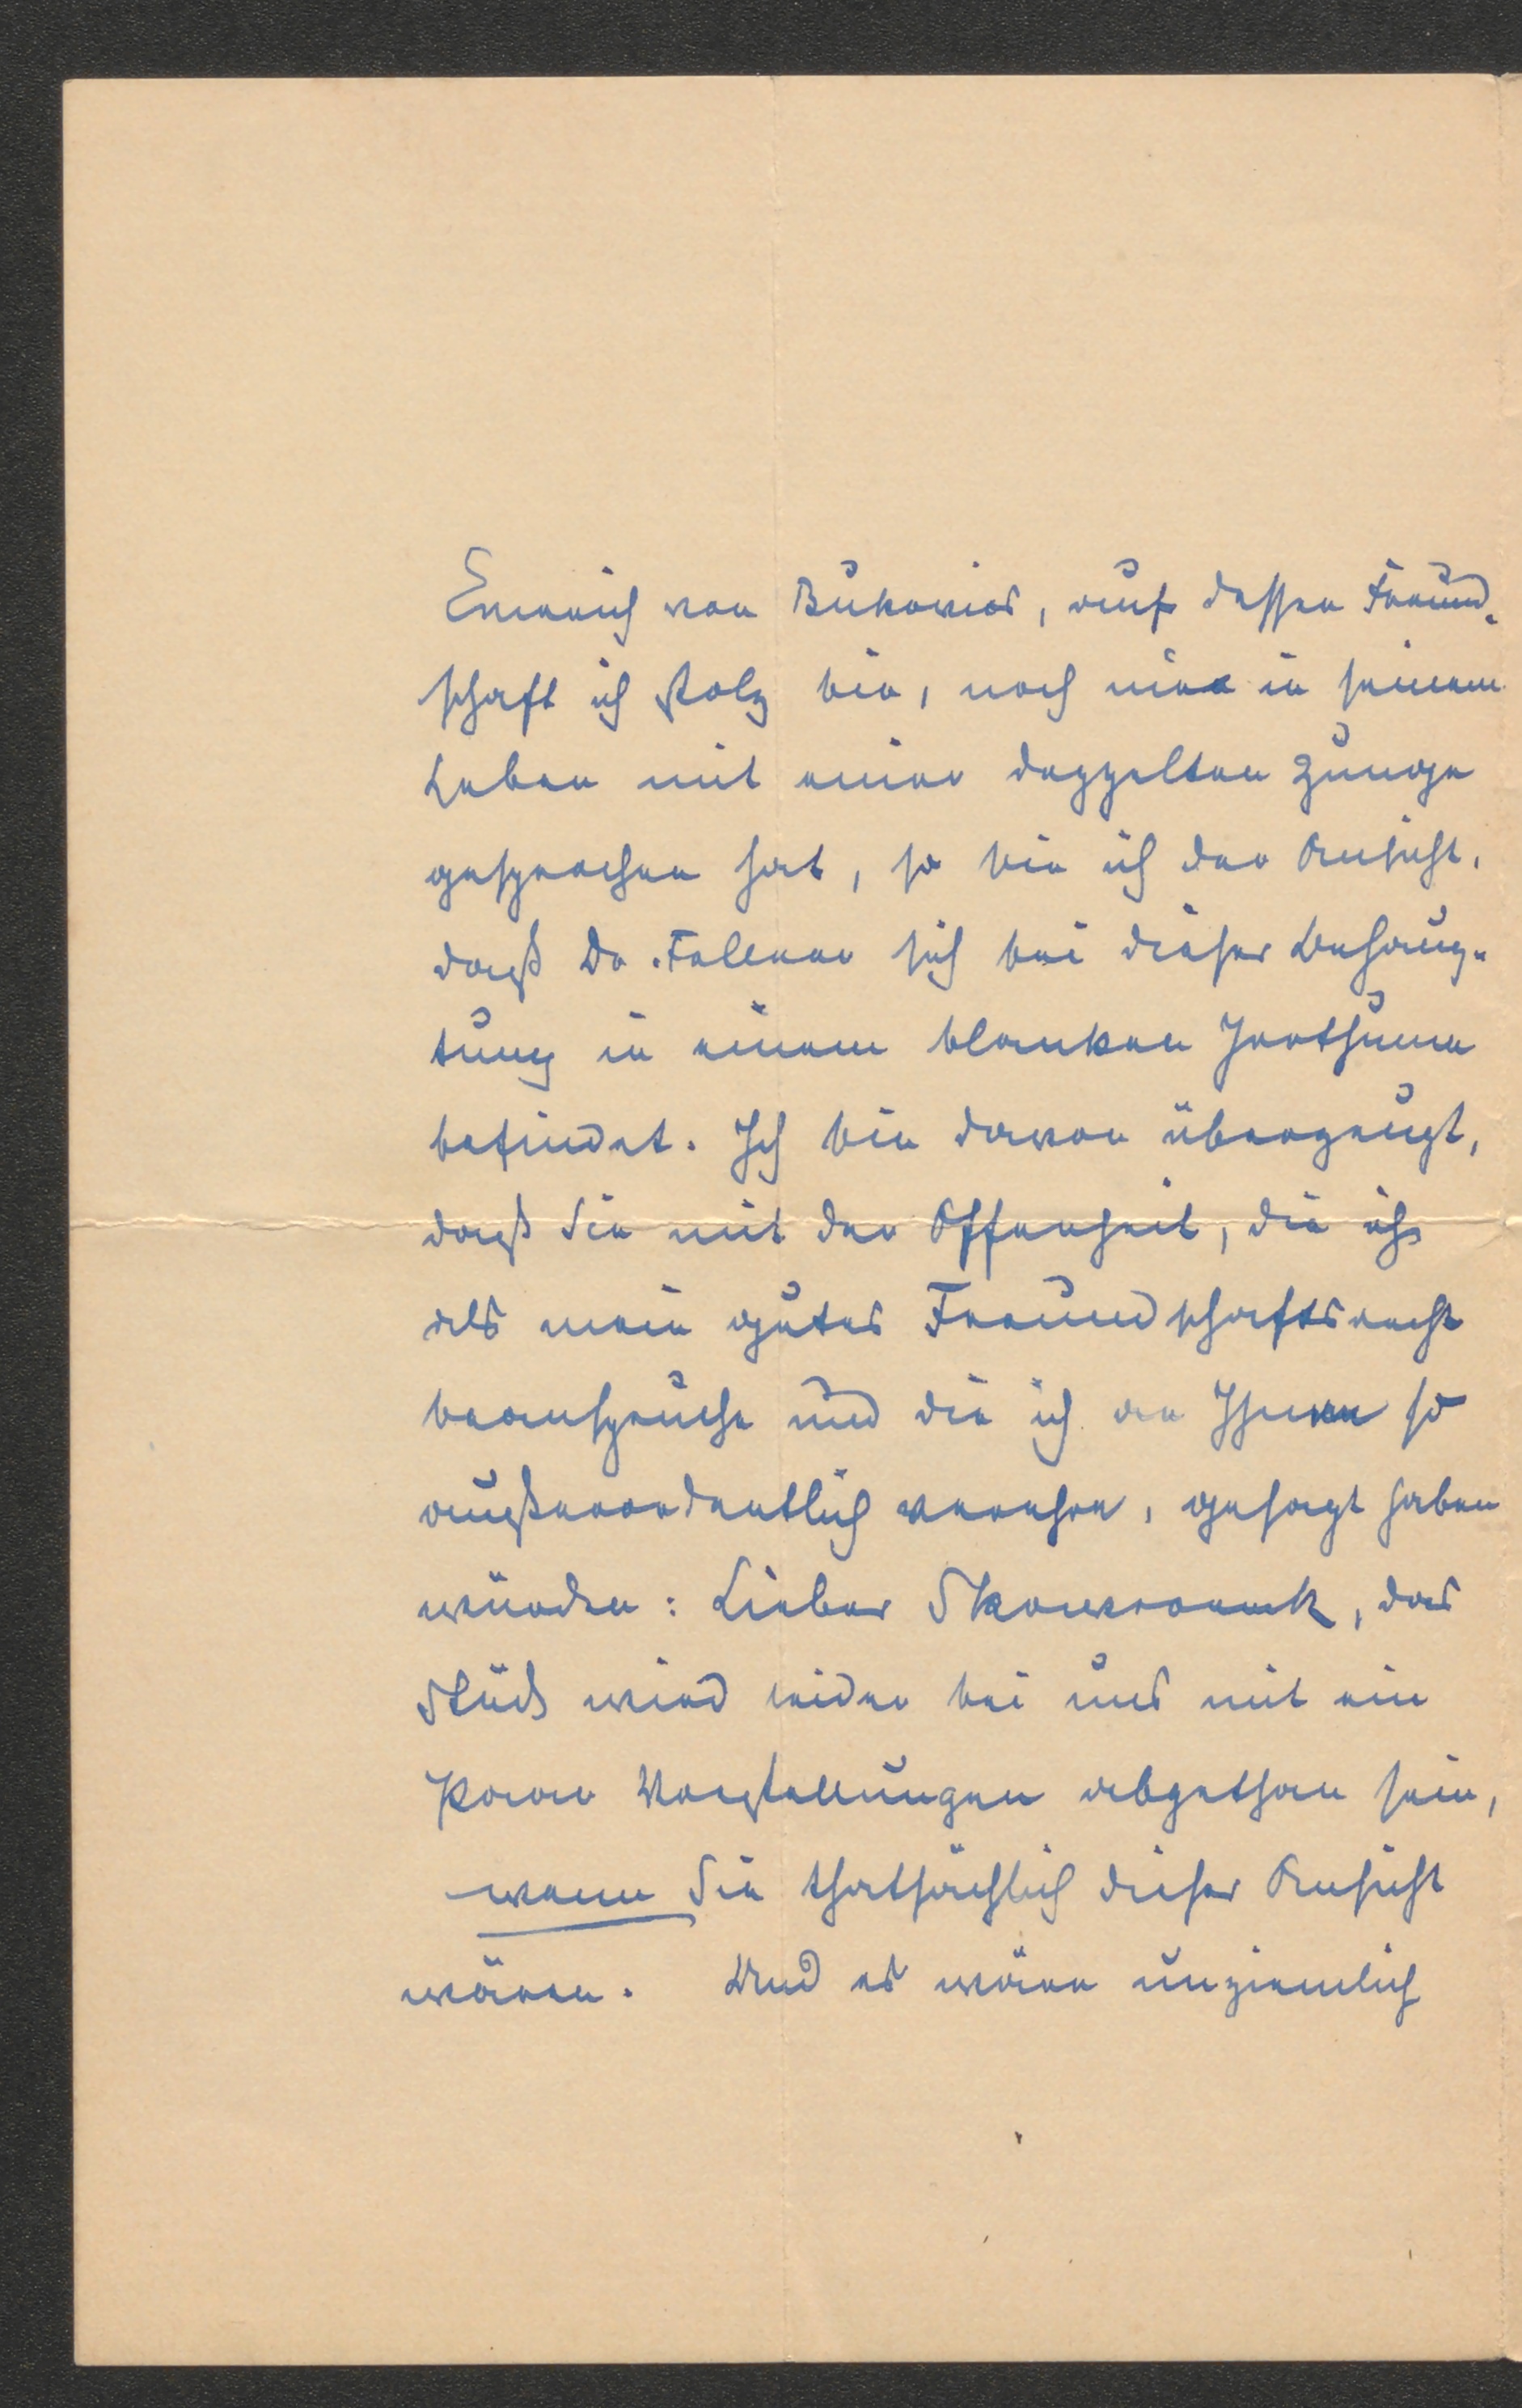 Emerich von Bukovics, auf dessen Freund-
schaft ich stolz bin, noch nie in seinem
Leben mit einer doppelten Zunge
gesprochen hat, so bin ich der Ansicht,
daß Dr. Fellner sich bei dieser Behaup-
tung in einem blanken Irrthume
befindet. Ich bin davon überzeugt,
daß Sie mit der Offenheit, die ich
als mein gutes Freundschaftsrecht
beanspruche und die ich an Ihnen so
außerordentlich verehre, gesagt haben
würden: Lieber Skowronnek, das
Stück wird leider bei uns mit ein
Paar Vorstellungen abgethan sein,
wenn Sie thatsächlich dieser Ansicht
wären. Und es wäre unziemlich